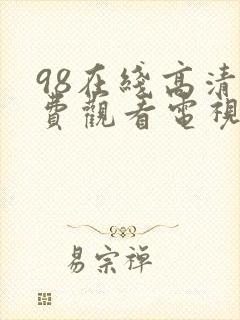 98在綫高清
費觀看電視
易宗禅